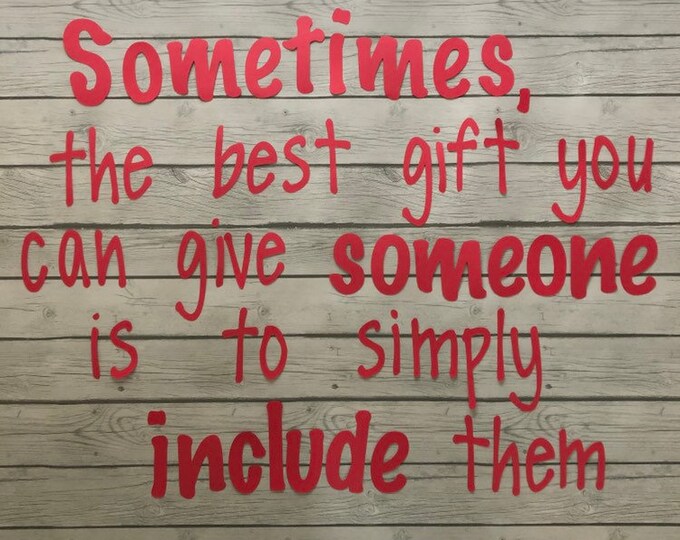 Sometimes,
the best gift you
can give someone
is to simply
include them